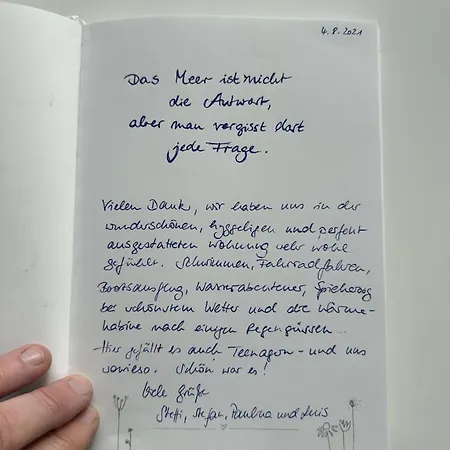 4.8.2021
Das Meer ist nicht
die Antwort,
aber man vergisst dort
jede Frage.
Vielen Dank, wir haben uns in der
wunderschönen, hyggeligen und perfekt
ausgestatteten Wohnung sehr wohl
gefühlt. Schwimmen, Fahrradfahren,
Bootsausflug, Wasserabenteuer,
bei schönstem Wetter und die Wärme-
kabine nach einigen Regengüssen...
Hier gefällt es auch Teenagern - und uns
sowieso. Schön war es!
Viele Grüße
Steffi, Stefan, Paulina und Luis